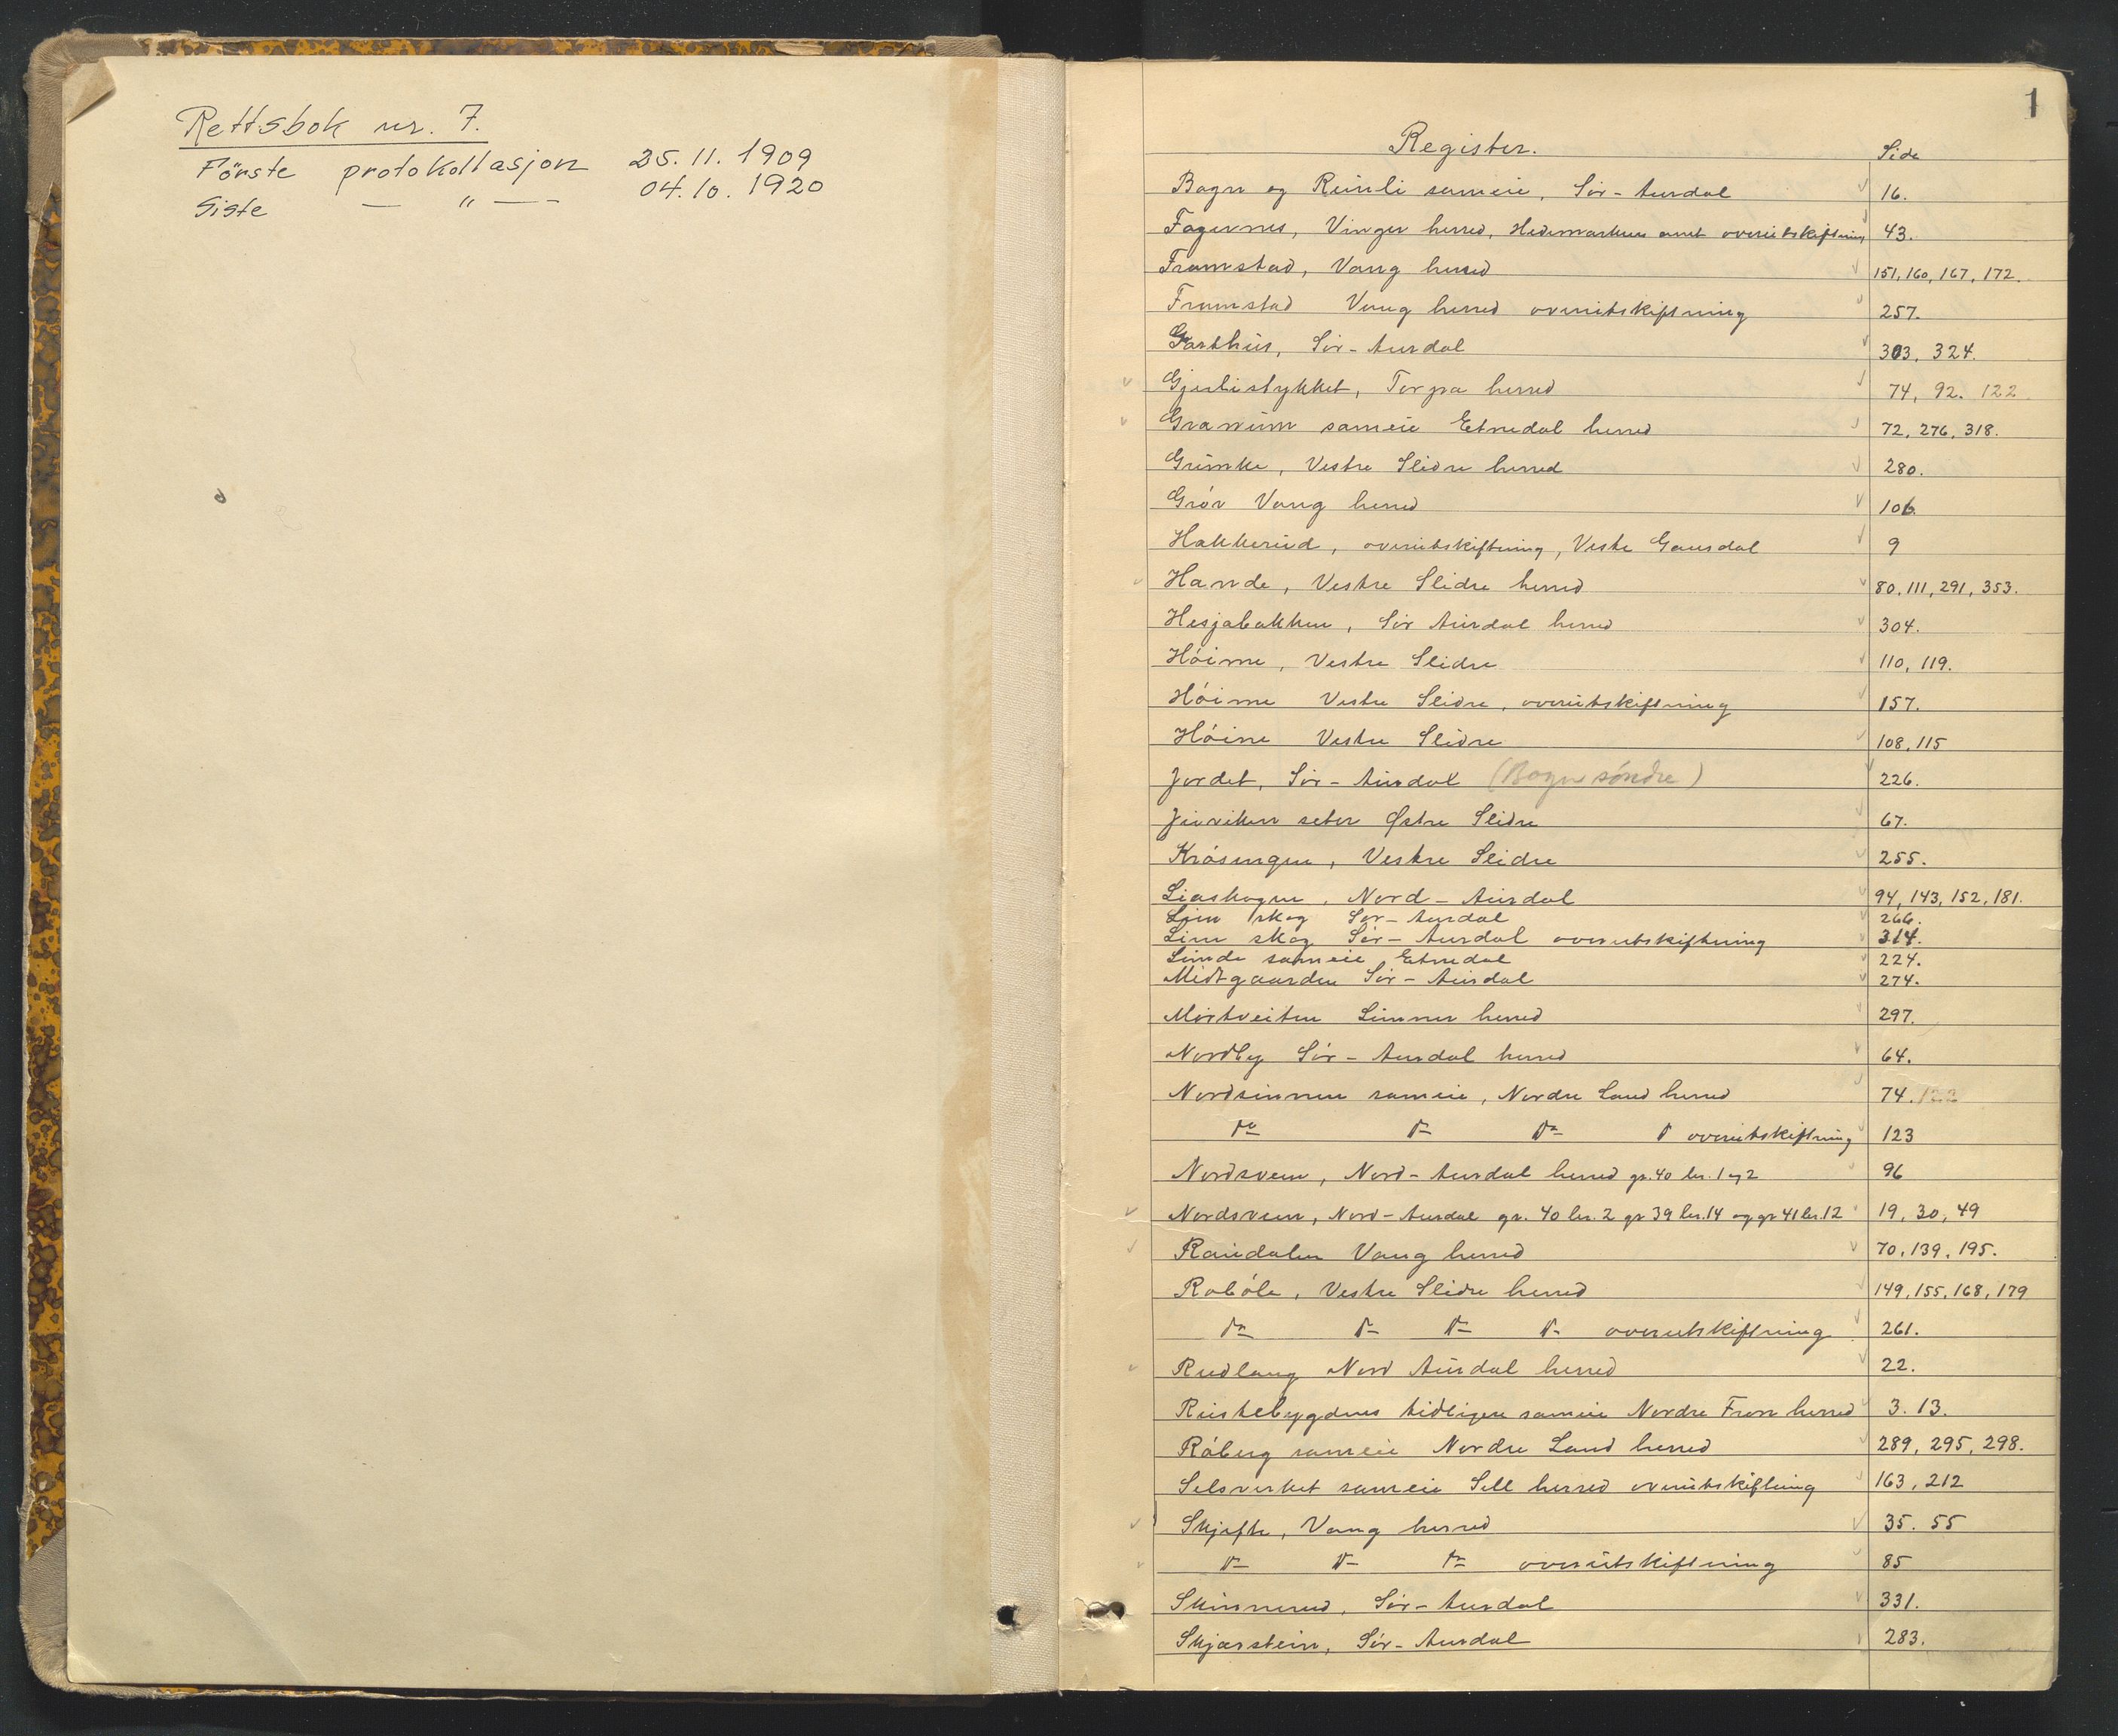 Rettsbok nr. 7.
Förste protokollasjon 25.11.1909
Siste — " — 04.10.1920
1
Register. Side
Bagn og Reinli sameie, Sör-Aurdal 16.
Fagernes, Vinger herred, Hedemarkens amt overutskiftning 43.
Framstad, Vang herred 151, 160, 167, 172.
Framstad Vang herred overutskiftning 257.
Garthus, Sör-Aurdal 303, 324.
Gjerlistykket, Torpa herred 74, 92. 122
Granum sameie Etnedal herred 72, 276, 318.
Grimke, Vestre Slidre herred 280.
Gröv Vang herred 106
Hakkerud, overutskiftning, Vestre Gausdal 9
Hande, Vestre Slidre herred 80, 111, 291, 353.
Hesjabakken, Sör Aurdal herred 304.
Höime, Vestre Slidre 110, 119.
Höime Vestre Slidre, overutskiftning 157.
Höine Vestre Slidre 108, 115
Jordet, Sör-Aurdal (Bagn söndre) 226.
seter Østre Slidre 67.
Krösengen, Vestre Slidre 255.
Liaskogen, Nord-Aurdal 94, 143, 152, 181.
Lien skog Sör-Aurdal 266.
Lien skog Sör-Aurdal overutskiftning 314.
Lunde sameie Etnedal 224.
Midtgaarden Sör-Aurdal 274.
Mörtveiten Lunner herred 297.
Nordby Sör-Aurdal herred 64.
Nordsinnen sameie, Nordre Land herred 74. 122
do do do do overutskiftning 123
Nordsveen, Nord-Aurdal herred gr. 40 br. 1 og 2 96
Nordsveen, Nord-Aurdal gr. 40 br. 2 gr 39 br. 14 og gr 41 br. 12 19, 30, 49
Raudalen Vang herred 70, 139, 195.
Roböle, Vestre Slidre herred 149, 155, 168, 179
do do do do overutskiftning 261.
Rudlang Nord Aurdal herred 22.
Rustebygdens tidligere sameie Nordre Fron herred 3. 13.
Röberg sameie Nordre Land herred 289, 295, 298.
Selsverket sameie Sell herred overutskiftning 163, 212
Skjefte, Vang herred 35. 55
do do do overutskiftning 85
Skinnerud, Sör-Aurdal 331.
Skjærstein, Sör-Aurdal 283.